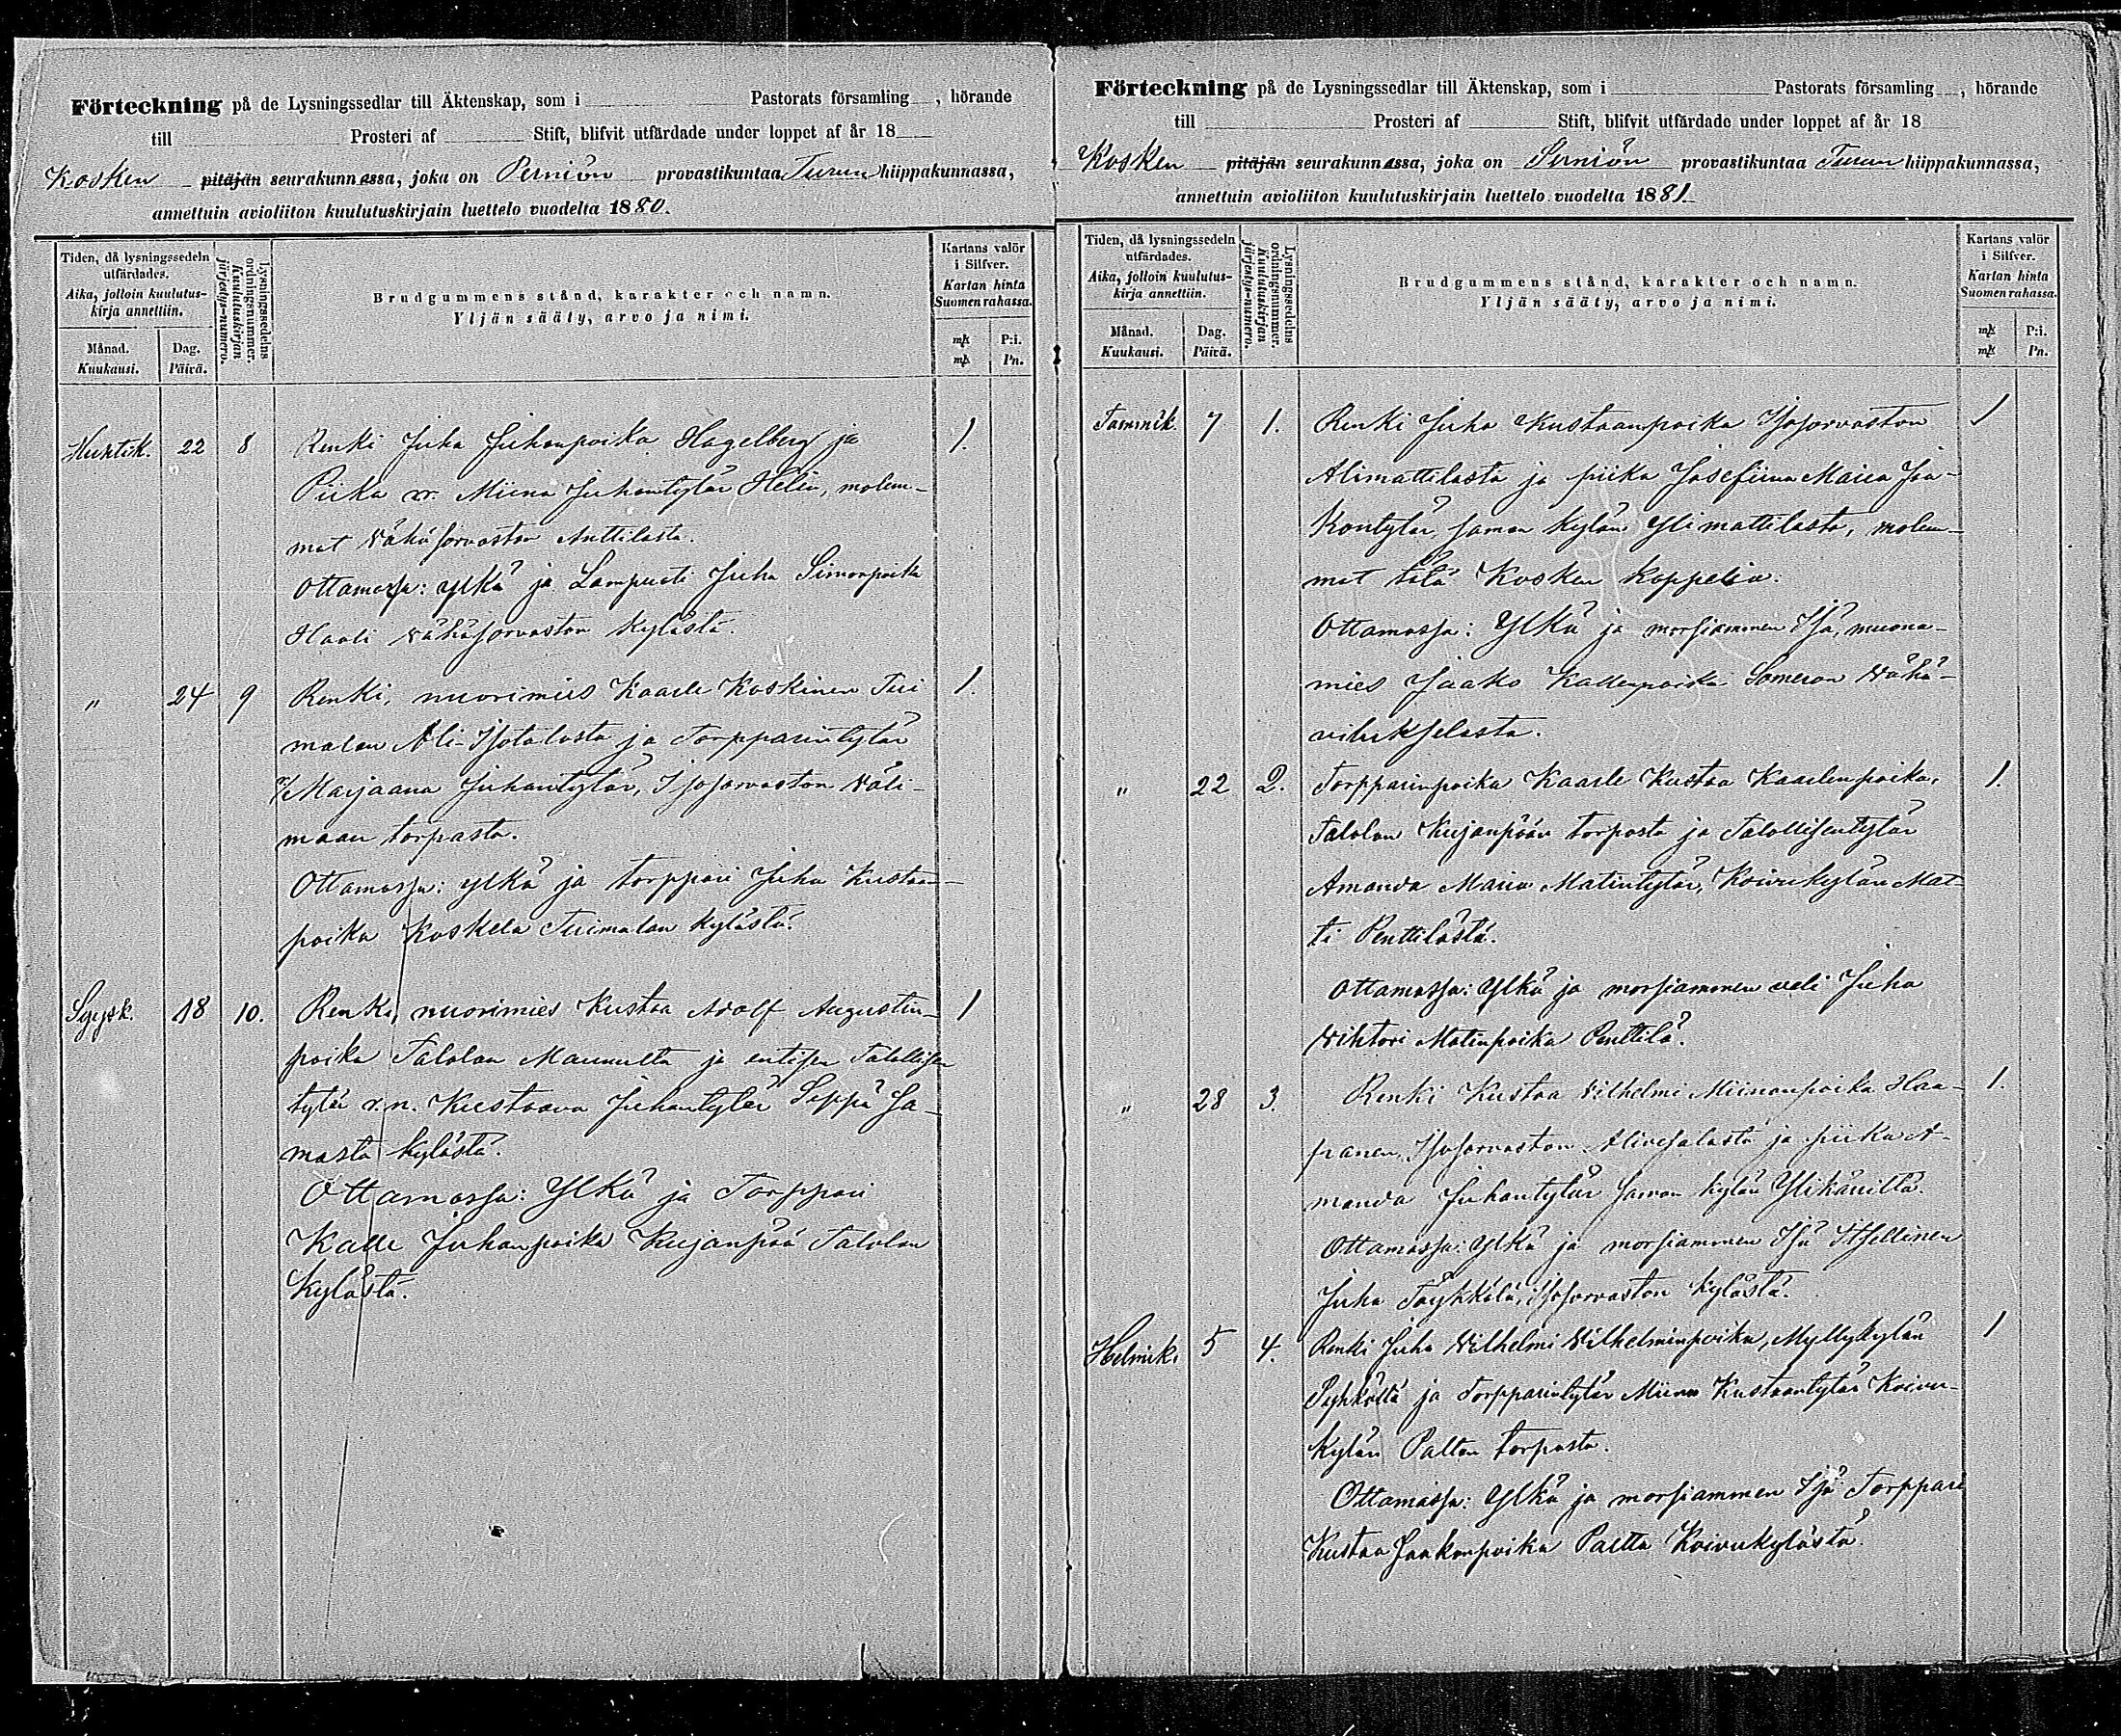 Förteckning på de Lysningssedlar till Äktenskap, som i Pastorats församling , hörande
till Prosteri af Stift, blifvit utfärdade under loppet af år 18
Kosken pitäjän seurakunnassa, joka on Perniön provastikuntaa Turun hiippakunnassa,
annettuin avioliiton kuulutuskirjain luettelo vuodelta 1880.
Tiden, då lysningssedeln utfärdades.
Aika, jolloin kuulutuskirja annettiin.
Månad. Kuukausi.
Dag. Päivä.
Lysningssedelns ordningsnummer.
Kuulutuskirjan järjestys-numero.
Brudgummens stånd, karakter och namn.
Yljän sääty, arvo ja nimi.
Kartans valör i Silfver.
Kartan hinta Suomen rahassa.
mk P:i.
mk Pn.
Huhtik. 22 8 Renki Juha Juhanpoika Hagelberg ja 1.
Piika Miina Juhantytär Helin, molem-
mat Vähäsorvaston Anttilasta.
Ottamassa: Ylkä ja Lampuoti Juha Simonpoika
Haali Vähäsorvaston kylästä.
" 24 9 Renki, nuorimies Kaarle Koskinen Tui 1.
malan Ali-Isotalosta ja Torpparintytär
Marjaana Juhantytär, Isosorvaston Väli-
maan torpasta.
Ottamassa: Ylkä ja torppari Juha Kustaan-
poika Koskela Tuimalan kylästä.
Syysk. 18 10. Renki, nuorimies Kustaa Adolf Augustin- 1
poika Talolan Maunulta ja entisen Talollisen
tytär v.n. Kustaava Juhantytär Seppä Sa-
masta kylästä.
Ottamassa: Ylkä ja Torppari
Kalle Juhanpoika Kujanpää Talolan
Kylästä.
Förteckning på de Lysningssedlar till Äktenskap, som i Pastorats församling , hörande
till Prosteri af Stift, blifvit utfärdade under loppet af år 18
Kosken pitäjän seurakunnassa, joka on Perniön provastikuntaa Turun hiippakunnassa,
annettuin avioliiton kuulutuskirjain luettelo vuodelta 1881.
Tiden, då lysningssedeln utfärdades.
Aika, jolloin kuulutuskirja annettiin.
Månad. Kuukausi.
Dag. Päivä.
Lysningssedelns ordningsnummer.
Kuulutuskirjan järjestys-numero.
Brudgummens stånd, karakter och namn.
Yljän sääty, arvo ja nimi.
Kartans valör i Silfver.
Kartan hinta Suomen rahassa.
mk P:i.
mk Pn.
Tammik. 7 1. Renki Juha Kustaanpoika Isosorvaston 1
Alimattilasta ja piika Josefiina Maria Jaa-
kontytär, saman kylän Ylimattilasta, molem-
mat tätä Kosken kappelia.
Ottamassa: Ylkä ja morsiammen Isä, muona-
mies Jaako Kallenpoika Someron Vähä-
vilukselasta.
" 22 2. Torpparinpoika Kaarle Kustaa Kaarlenpoika, 1.
Talolan Kujanpään torpasta ja Talollisentytär
Amanda Maria Matintytär, Koivukylän Mat-
ti Penttilästä.
Ottamassa: Ylkä ja morsiammen veli Juha
Vihtori Matinpoika Penttilä.
" 28 3. Renki Kustaa Vilhelmi Miinanpoika Haa- 1.
panen, Isosorvaston Alivesalasta ja piika A-
manda Juhantytär saman kylän Ylikäniltä.
Ottamassa: Ylkä ja morsiammen Isä Itsellinen
Juha Töykkälä, Isosorvaston kylästä.
Helmik. 5 4. Renki Juha Vilhelmi Vilhelminpoika, Myllykylän 1
Pyhköltä ja Torpparintytär Miina Kustaantytär Koivu-
kylän Paltan torpasta.
Ottamassa: Ylkä ja morsiammen Isä Torppari
Kustaa Jaakonpoika Paltta Koivukylästä.